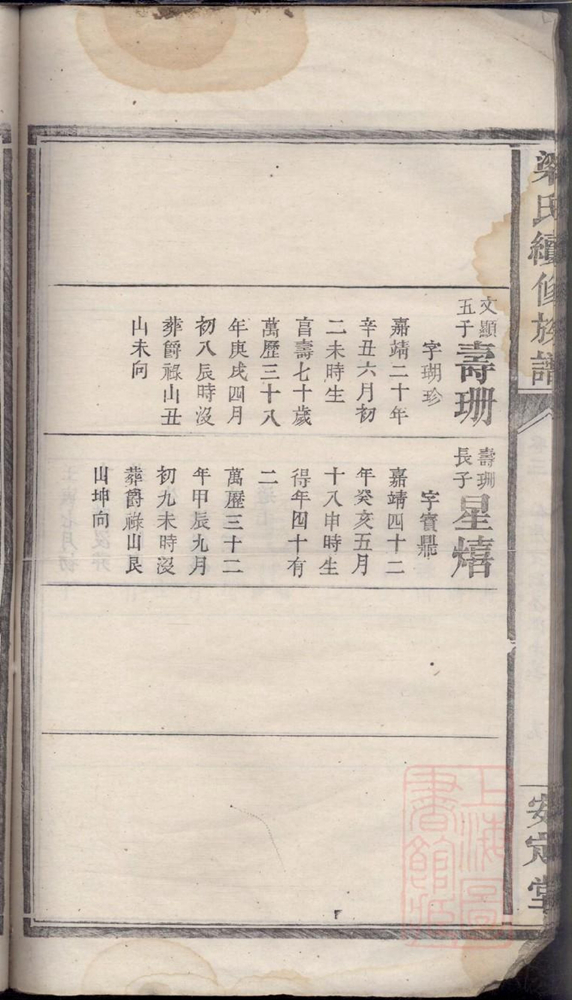 梁氏續修族譜
安定堂
文顯
五子
壽珊
字瑚珍
嘉靖二十年
辛丑六月初
二未時生
享壽七十歲
萬歷三十八
年庚戌四月
初八辰時沒
葬爵祿山丑
山未向
壽珊
長子
星熺
字寳鼎
嘉靖四十二
年癸亥五月
十八申時生
得年四十有
二
萬歷三十二
年甲辰九月
初九未時沒
葬爵祿山艮
山坤向
上海圖
書館藏